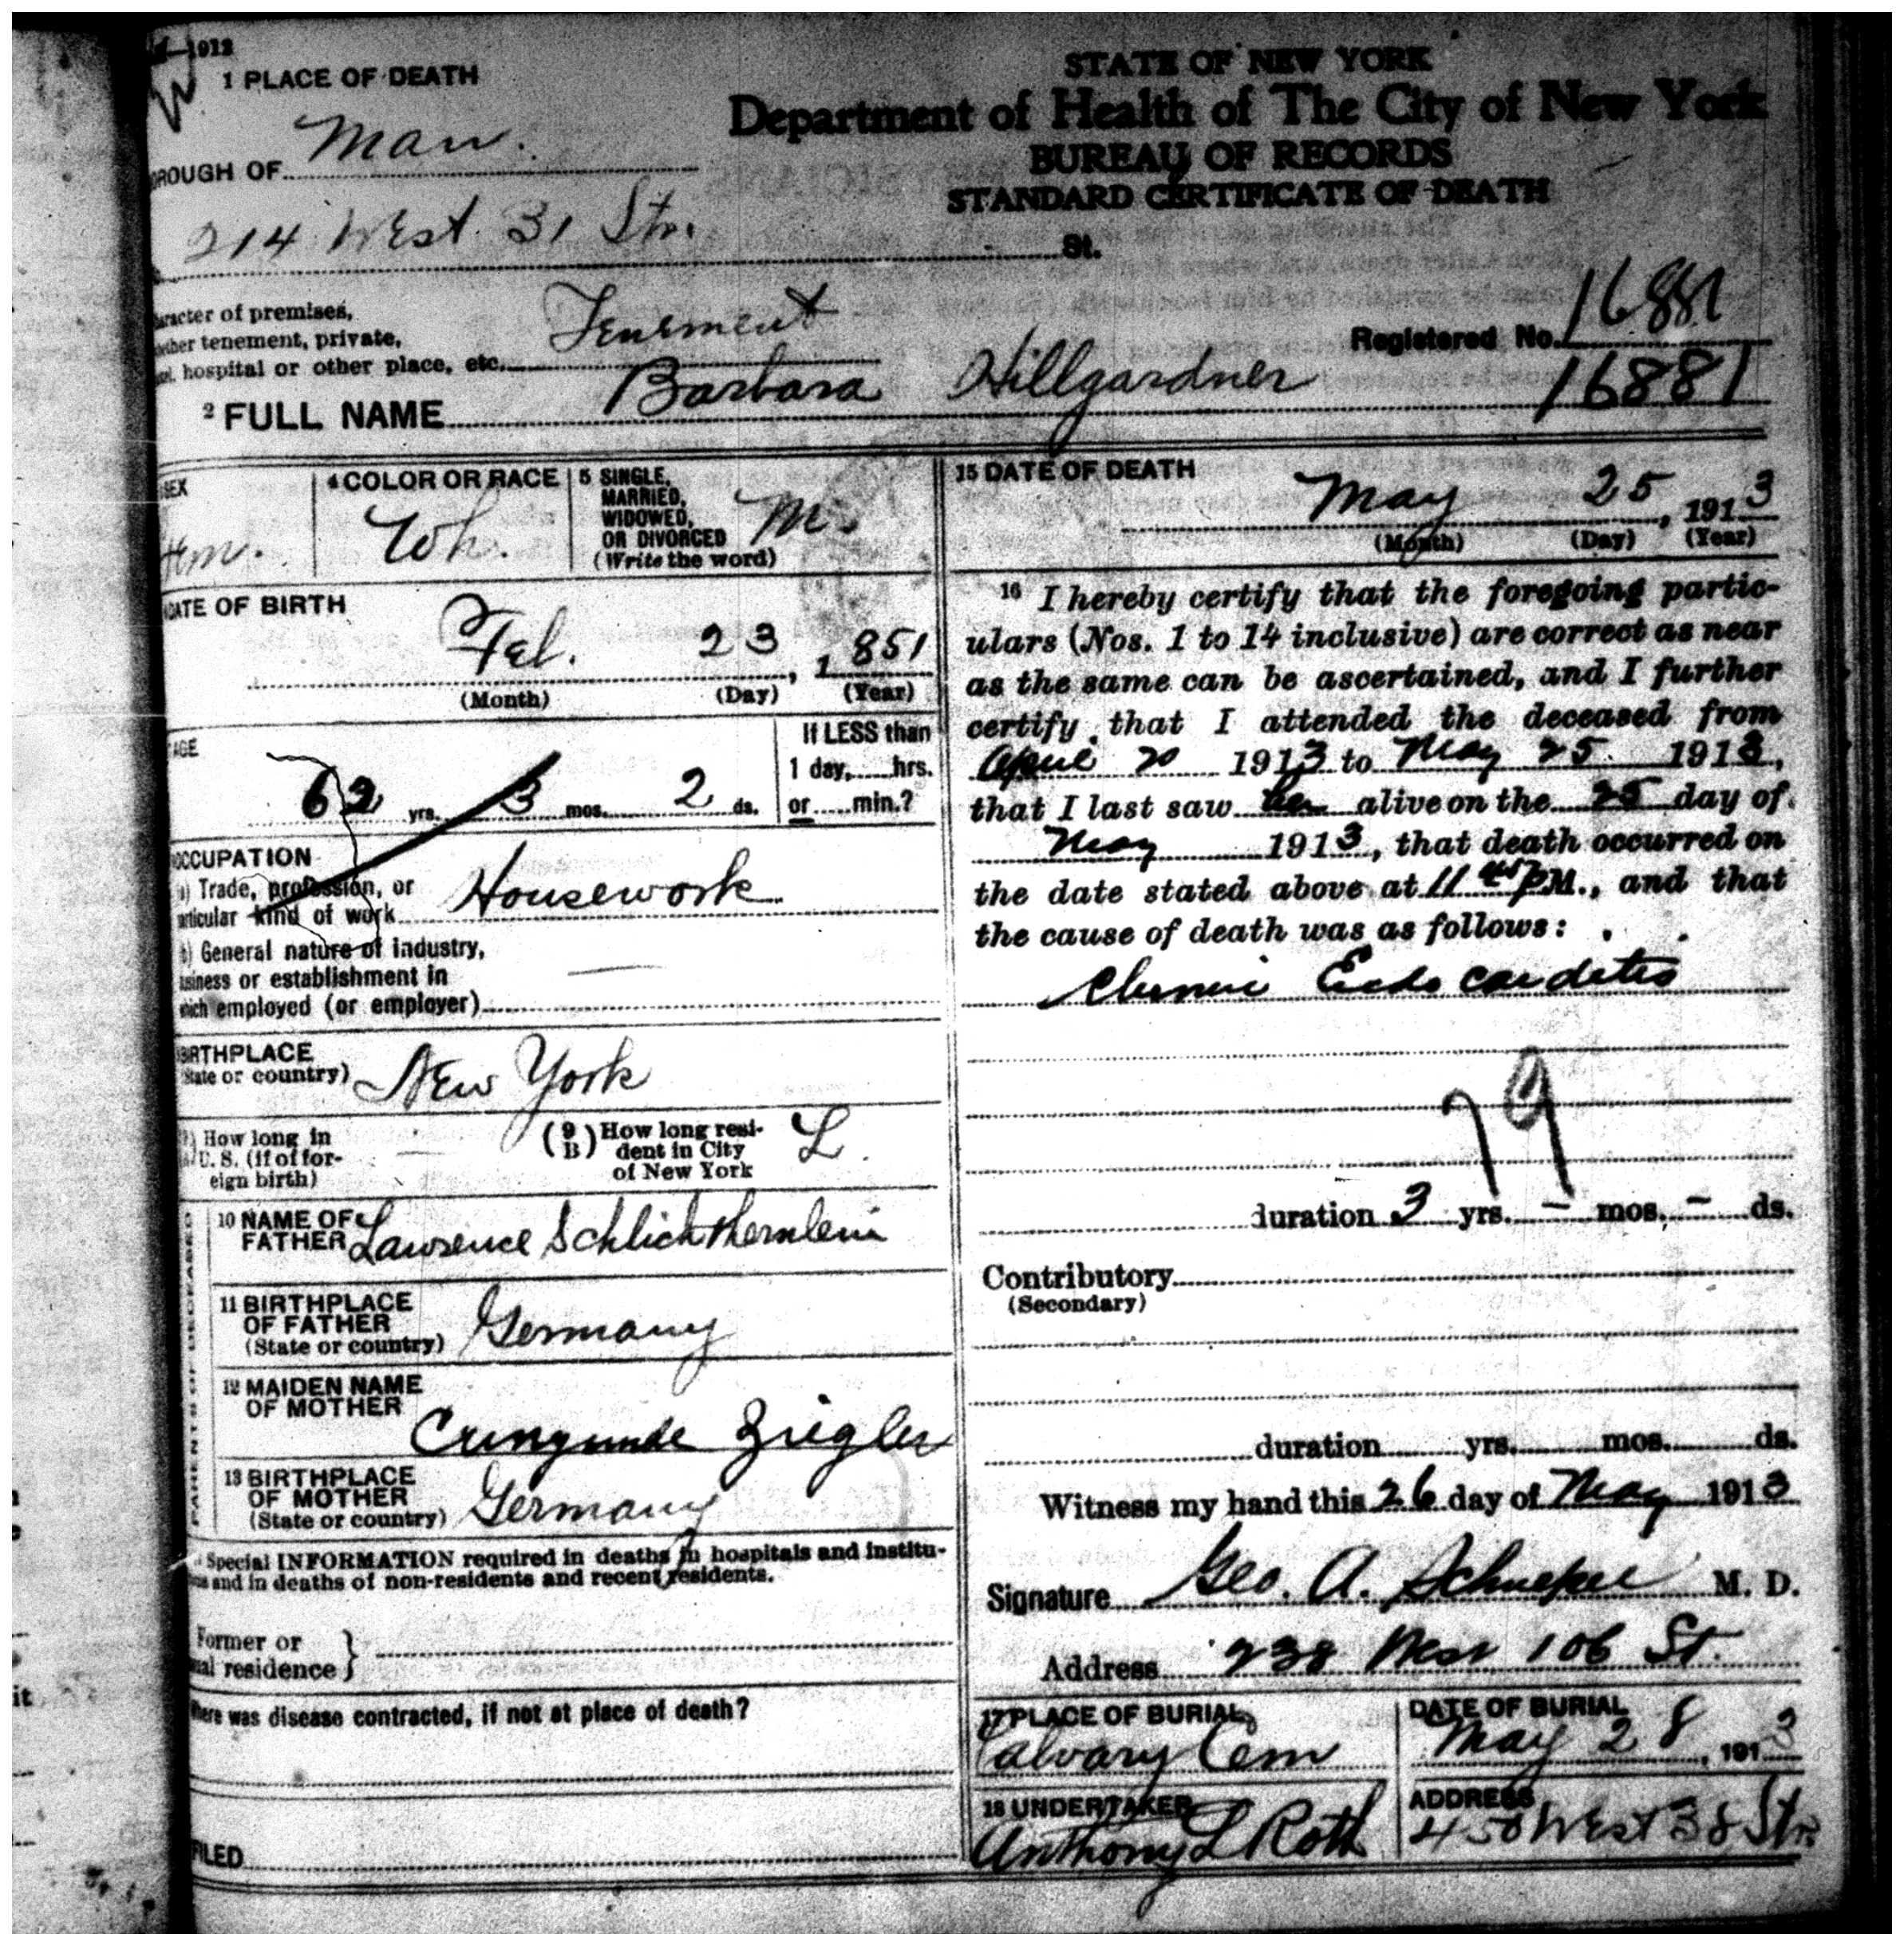 1912
1 PLACE OF DEATH
STATE OF NEW YORK
Department of Health of The City of New York
BUREAU OF RECORDS
STANDARD CERTIFICATE OF DEATH
OROUGH OF Man.
214 West 31 Str. St.
aracter of premises,
ether tenement, private,
hospital or other place, etc. Tenement
Registered No. 16881
2 FULL NAME Barbara Hillgardner 16881
SEX
Fem.
4 COLOR OR RACE
Wh.
5 SINGLE,
MARRIED,
WIDOWED,
OR DIVORCED
(Write the word)
M.
DATE OF BIRTH
Feb. 23, 1851
(Month) (Day) (Year)
AGE
62 yrs. 3 mos. 2 ds.
If LESS than
1 day, hrs.
or min.?
OCCUPATION
a) Trade, profession, or
articular kind of work Housework
b) General nature of industry,
usiness or establishment in
which employed (or employer) —
BIRTHPLACE
(State or country) New York
How long in
U. S. (if of for-
eign birth) —
(9 B) How long resi-
dent in City
of New York L.
PARENTS OF DECEASED
10 NAME OF
FATHER Lawrence Schlichthernlein
11 BIRTHPLACE
OF FATHER
(State or country) Germany
12 MAIDEN NAME
OF MOTHER
Cunegunde Ziegler
13 BIRTHPLACE
OF MOTHER
(State or country) Germany
Special INFORMATION required in deaths in hospitals and institu-
ons and in deaths of non-residents and recent residents.
Former or
ual residence }
Where was disease contracted, if not at place of death?
FILED
15 DATE OF DEATH
May 25, 1913
(Month) (Day) (Year)
16 I hereby certify that the foregoing partic-
ulars (Nos. 1 to 14 inclusive) are correct as near
as the same can be ascertained, and I further
certify that I attended the deceased from
April 20 1913 to May 25 1913,
that I last saw her alive on the 25 day of
May 1913, that death occurred on
the date stated above at 11 P.M., and that
the cause of death was as follows:
Chronic Endocarditis
79
duration 3 yrs. – mos. – ds.
Contributory
(Secondary)
duration yrs. mos. ds.
Witness my hand this 26 day of May 1913
Signature Geo. A. M. D.
Address 238 West 106 St.
17 PLACE OF BURIAL
Calvary Cem
DATE OF BURIAL
May 28, 1913
18 UNDERTAKER
Anthony L Roth
ADDRESS
450 West 38 Str.